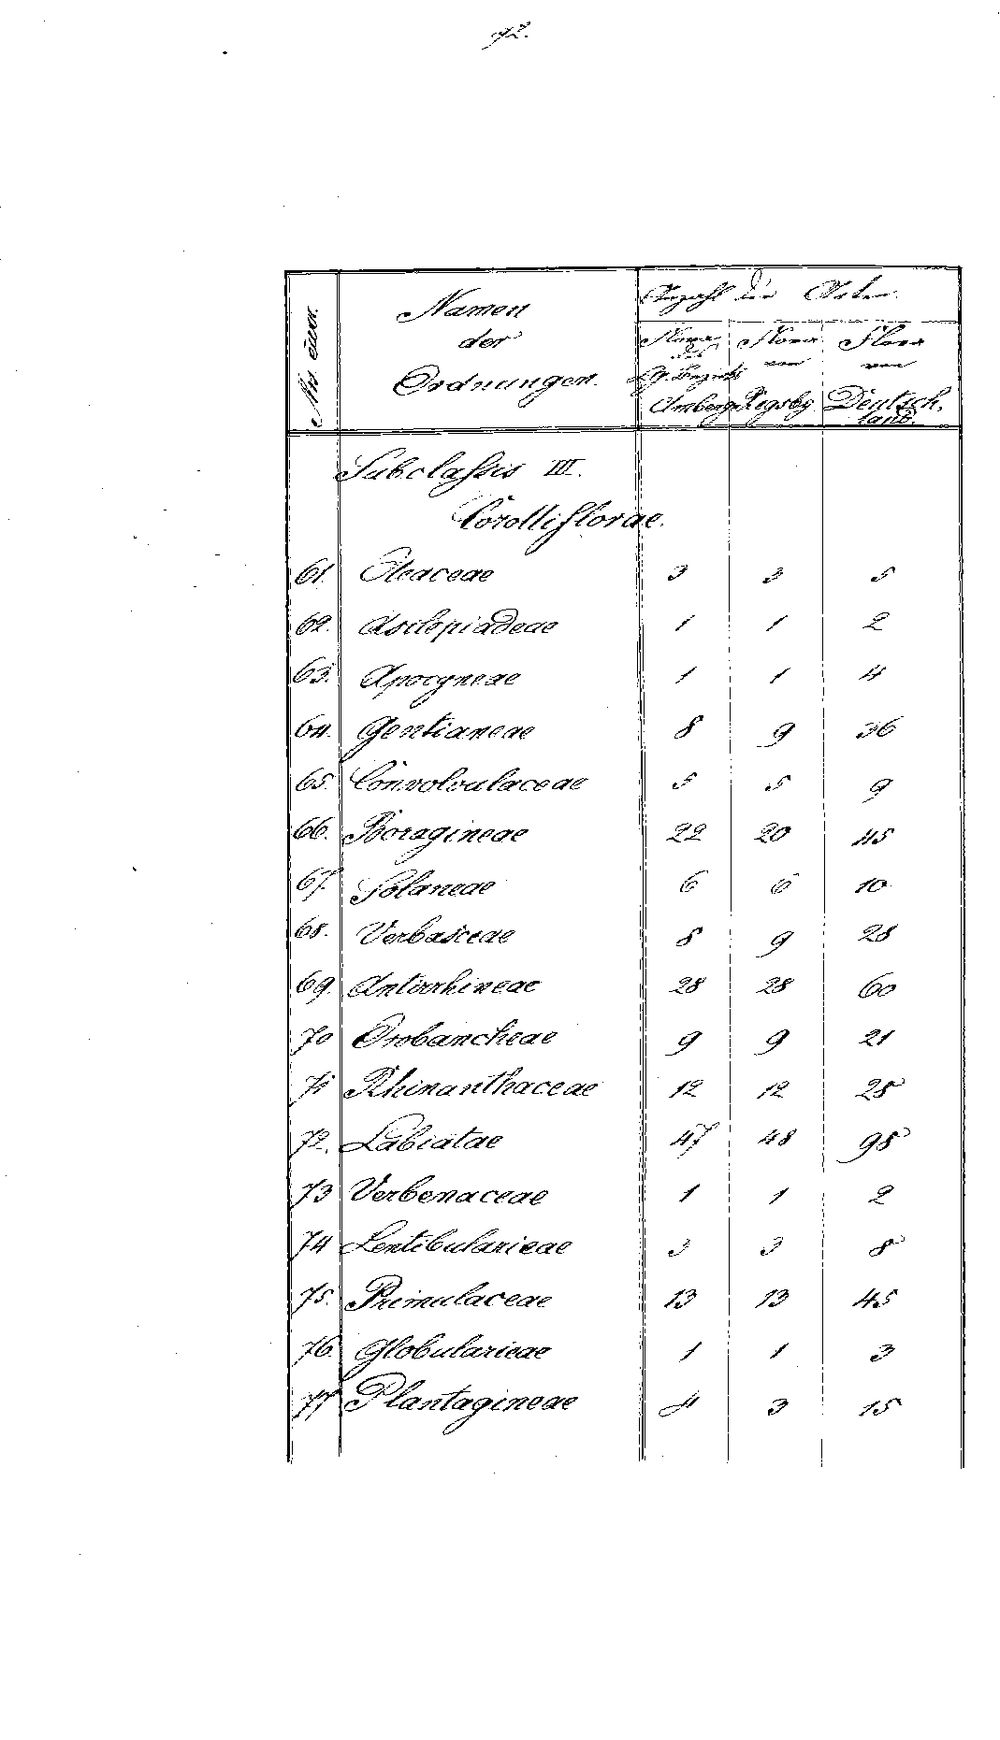 92.
Nrs. curr.
Namen
der
Ordnungen.
Anzahl der Arten.
Flora des L.G. Bezirks Amberg
Flora von Rgsbg
Flora von Deutschland.
Subclassis III.
Corolliflorae.
61. Oleaceae 3 3 5
62. Asclepiadeae 1 1 2
63. Apocyneae 1 1 4
64. Gentianeae 8 9 36
65. Convolvulaceae 5 5 9
66. Boragineae 22 20 45
67. Solaneae 6 6 10
68. Verbasceae 8 9 28
69. Antirrhineae 28 28 60
70 Orobancheae 9 9 21
71 Rhinanthaceae 12 12 28
72. Labiatae 47 48 98
73 Verbenaceae 1 1 2
74 Lentibularieae 3 3 8
75. Primulaceae 13 13 45
76. Globularieae 1 1 3
77 Plantagineae 4 3 15